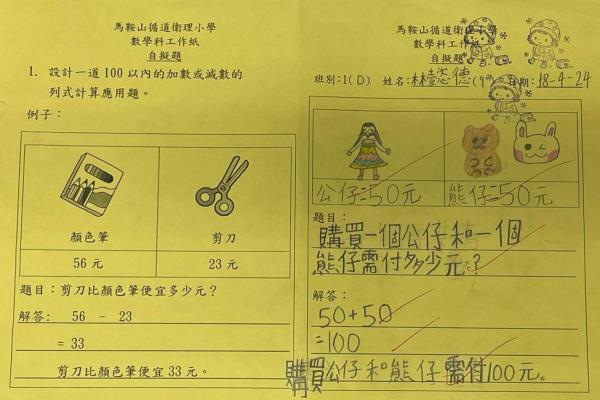 馬鞍山循道衛理小學
數學科工作紙
自擬題
1. 設計一道100以內的加數或減數的
列式計算應用題。
例子：
顏色筆 剪刀
56元 23元
題目：剪刀比顏色筆便宜多少元？
解答： 56 － 23
= 33
剪刀比顏色筆便宜33元。
馬鞍山循道衛理小學
數學科工作紙
自擬題
班別：1(D) 姓名：林懿德 日期：18-4-24
公仔=50元 熊仔=50元
題目：
購買一個公仔和一個
熊仔需付多少元？
解答：
50+50
=100
購買公仔和熊仔需付100元。